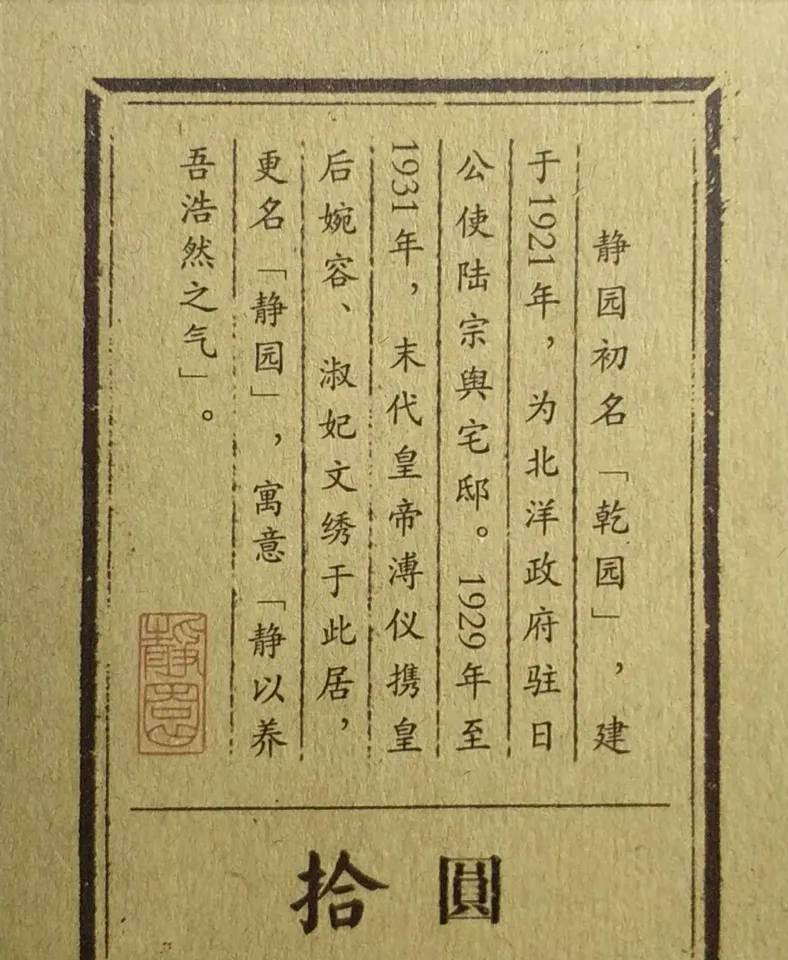 静园初名「乾园」，建
于1921年，为北洋政府驻日
公使陆宗舆宅邸。1929年至
1931年，末代皇帝溥仪携皇
后婉容、淑妃文绣于此居，
更名「静园」，寓意「静以养
吾浩然之气」。
静园
拾圓